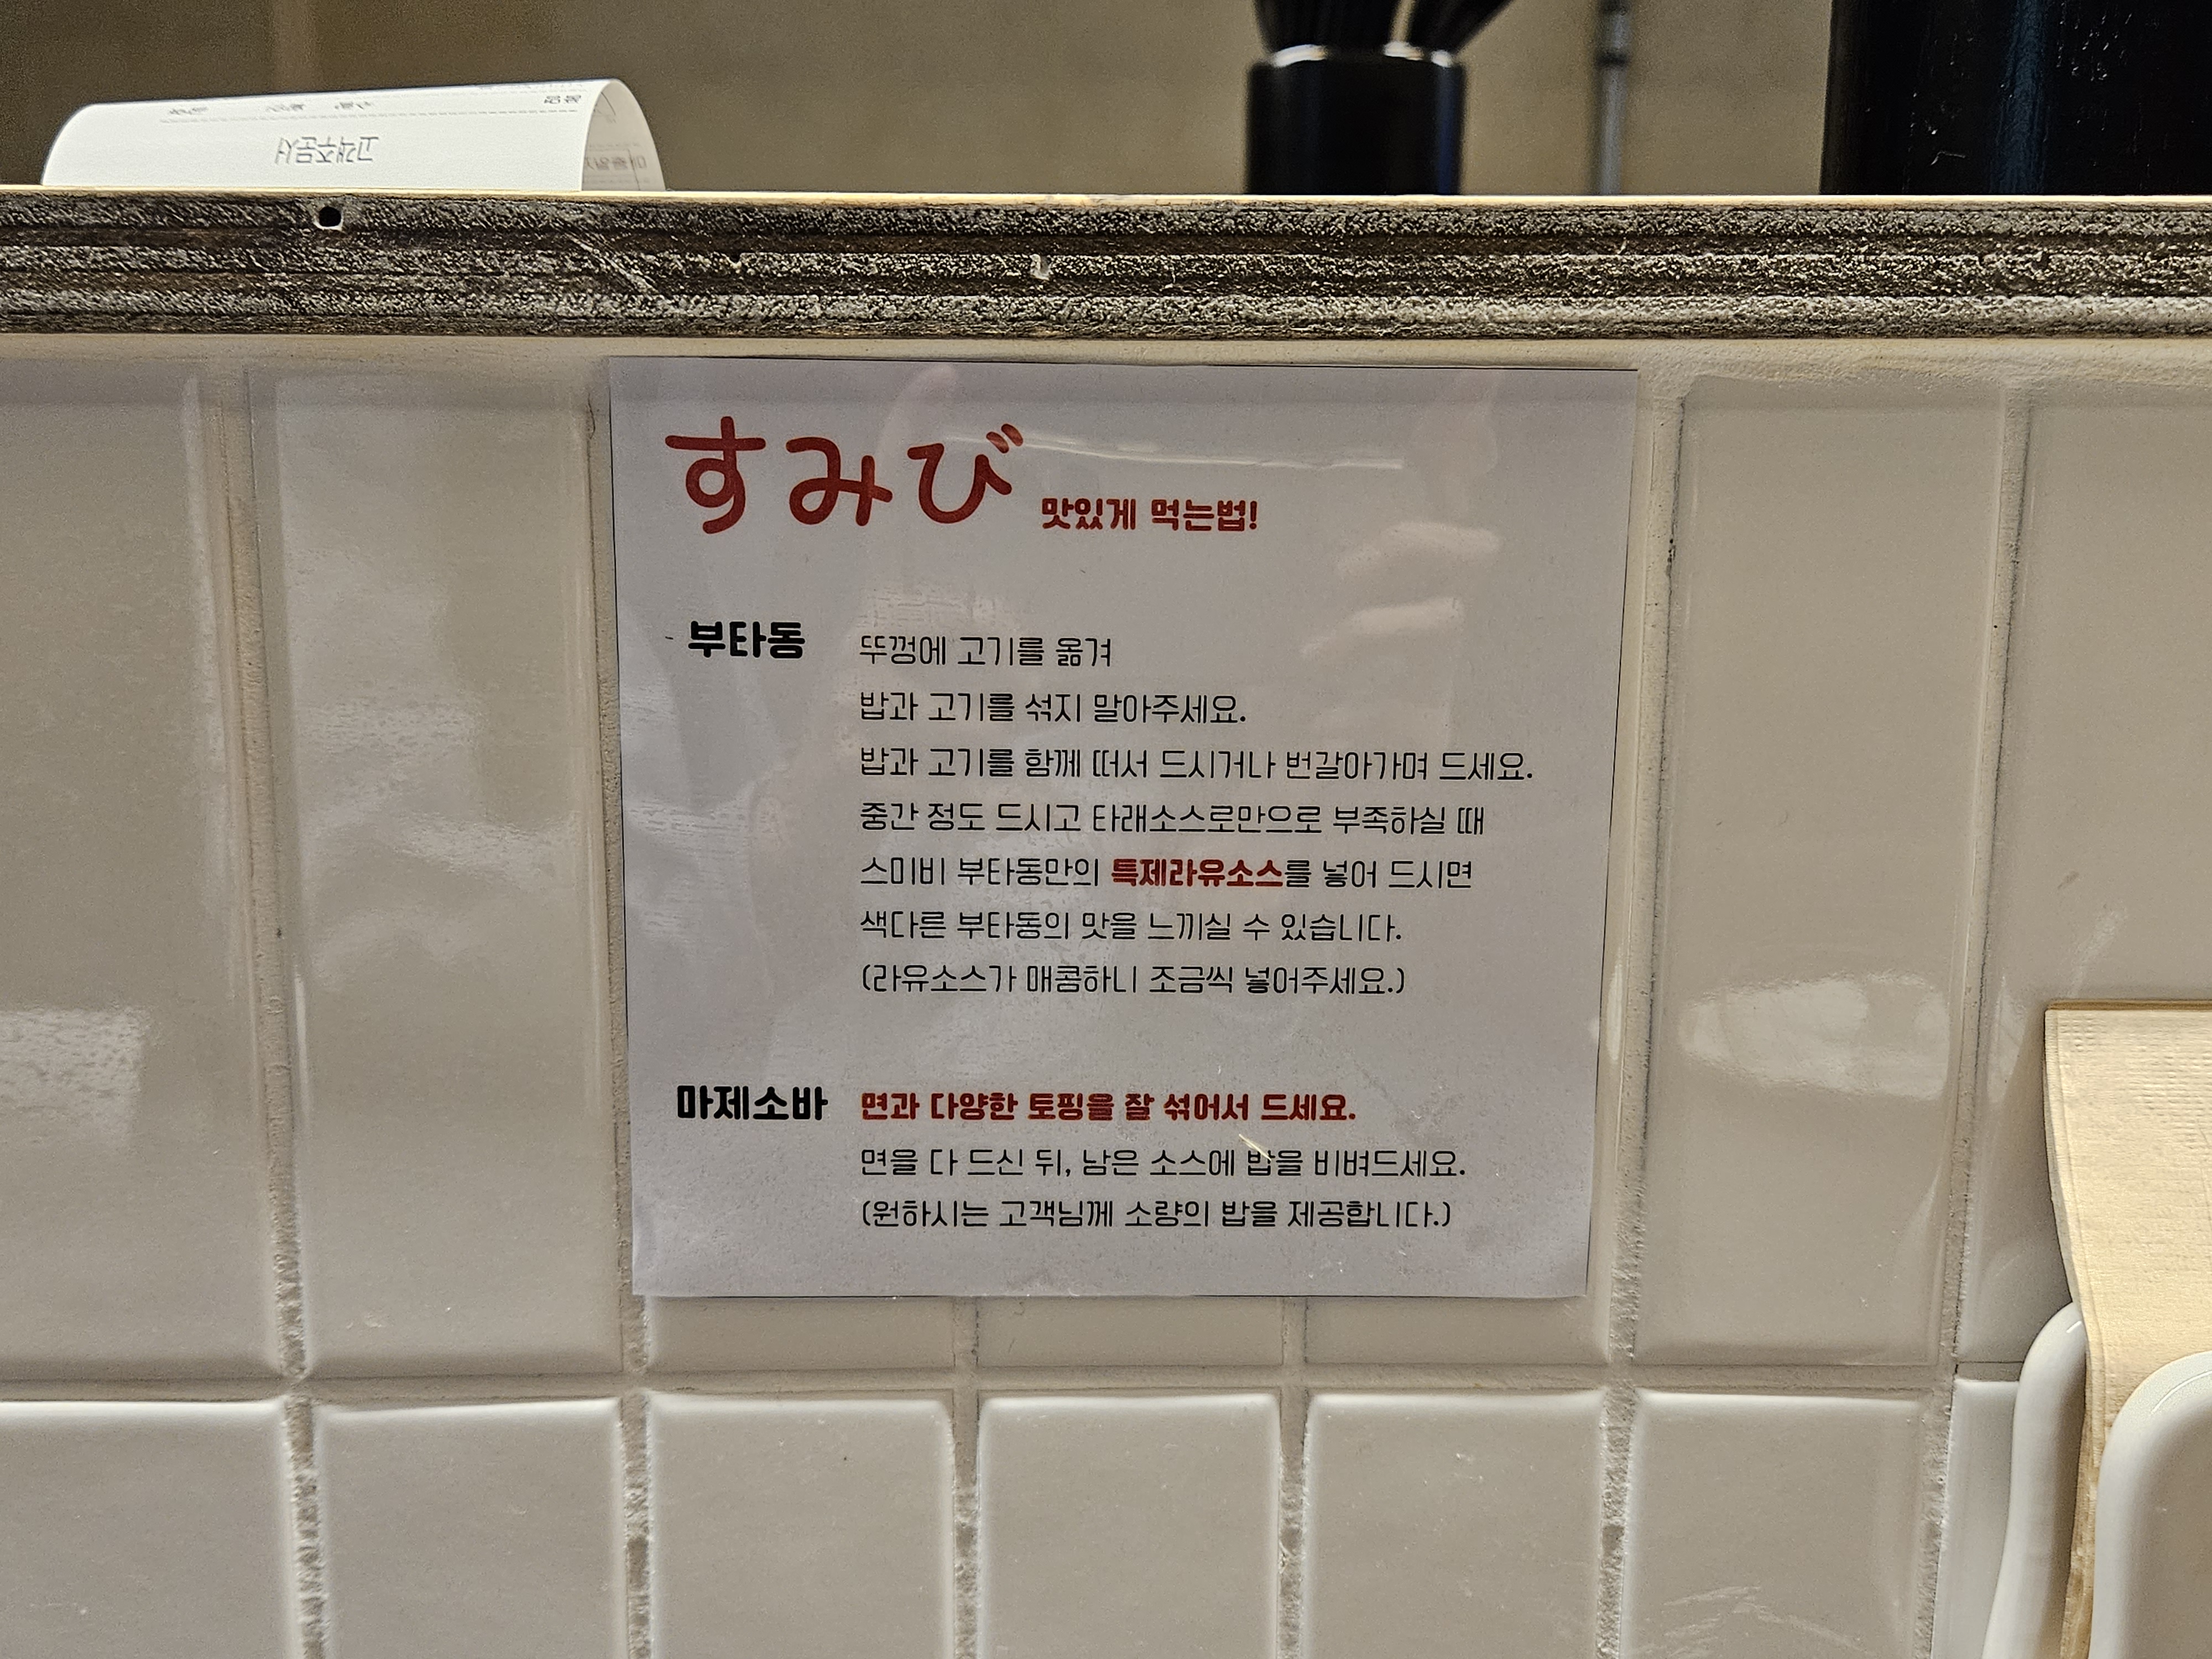 고객주문서
すみび 맛있게 먹는법!
- 부타동 뚜껑에 고기를 옮겨
밥과 고기를 섞지 말아주세요.
밥과 고기를 함께 떠서 드시거나 번갈아가며 드세요.
중간 정도 드시고 타래소스로만으로 부족하실 때
스미비 부타동만의 특제라유소스를 넣어 드시면
색다른 부타동의 맛을 느끼실 수 있습니다.
(라유소스가 매콤하니 조금씩 넣어주세요.)
마제소바 면과 다양한 토핑을 잘 섞어서 드세요.
면을 다 드신 뒤, 남은 소스에 밥을 비벼드세요.
(원하시는 고객님께 소량의 밥을 제공합니다.)